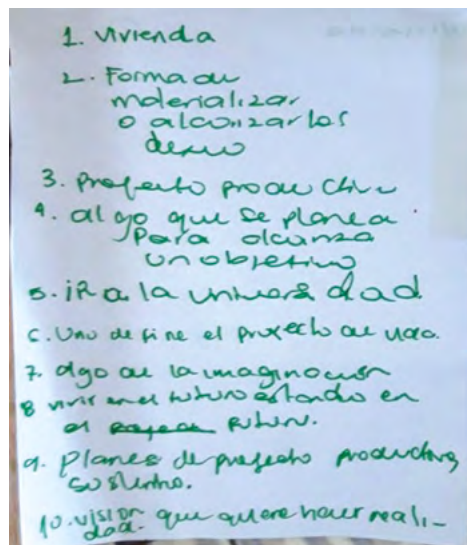 1. Vivienda
2. Forma de
materializar
o alcanzar los
deseo
3. Proyecto productivo
4. algo que se planea
para alcanza
un objetivo
5. iR a la universidad
6. Uno define el proyecto de vida.
7. algo de la imaginación
8 vivir en el futuro estando en
el futuro.
9. Planes de proyecto productivo,
sustento.
10. visión que quiere hacer reali-
dad.